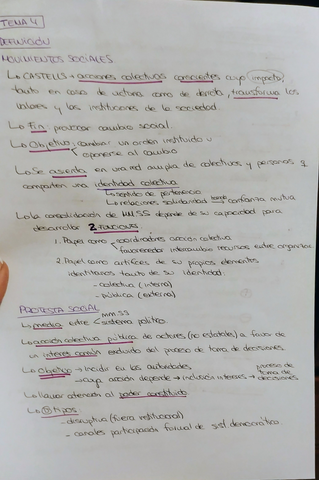 TEMA 4
DEFINICIÓN
MOVIMIENTOS SOCIALES
↳ CASTELLS → acciones colectivas conscientes cuyo impacto,
tanto en caso de victoria como de derrota, transforma los
valores y las instituciones de la sociedad.
↳ Fin: provocar cambio social.
↳ Objetivo: cambiar un orden instituido u
oponerse al cambio
↳ Se asienta en una red amplia de colectivos y personas q
comparten una identidad colectiva
↳ sentido de pertenencia
↳ relaciones solidaridad confianza mutua
↳ La consolidación de MM.SS depende de su capacidad para
desarrollar 2 FUNCIONES
1. Papel como coordinadores acción colectiva
favorecedor intercambio recursos entre organizac
2. Papel como artífices de sus propios elementos
identitarios tanto de su identidad:
- colectiva (interna)
- pública (externa)
PROTESTA SOCIAL
↳ media entre MM.SS
sistema político
↳ acción colectiva pública de actores (no estatales) a favor de
un interés común excluido del proceso de toma de decisiones.
↳ Objetivo → incidir en las autoridades,
→ cuya acción depende → inclusión intereses → proceso de toma de decisiones
↳ llamar atención al poder constituido
↳ tipos
- disruptiva (fuera institucional)
- canales participación formal de sist. democrático